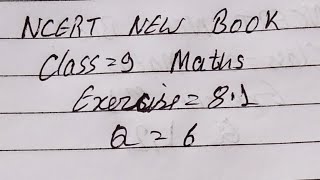 NCERT NEW BOOK
Class=9 Maths
Exercise=8.1
Q = 6